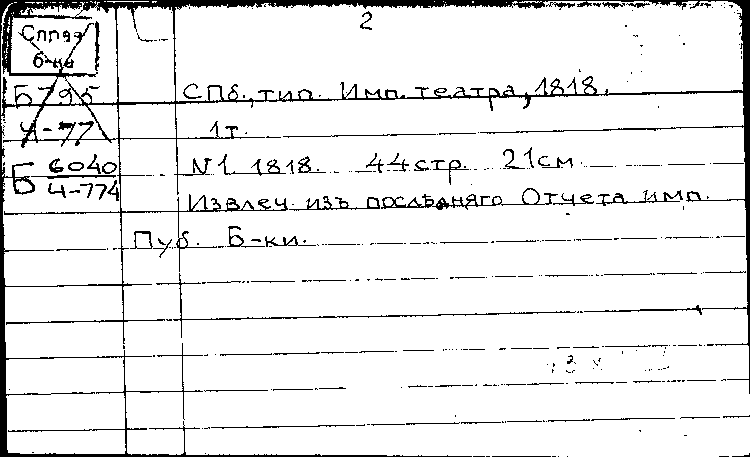 2
Справ
б-ка
Б795
Ч-77
Б 6040
Ч-774
СПб., тип. Имп. театра, 1818.
1т.
N1 1818. 44стр. 21см
Извлеч. изъ послѣдняго Отчета имп.
Пуб. Б-ки.